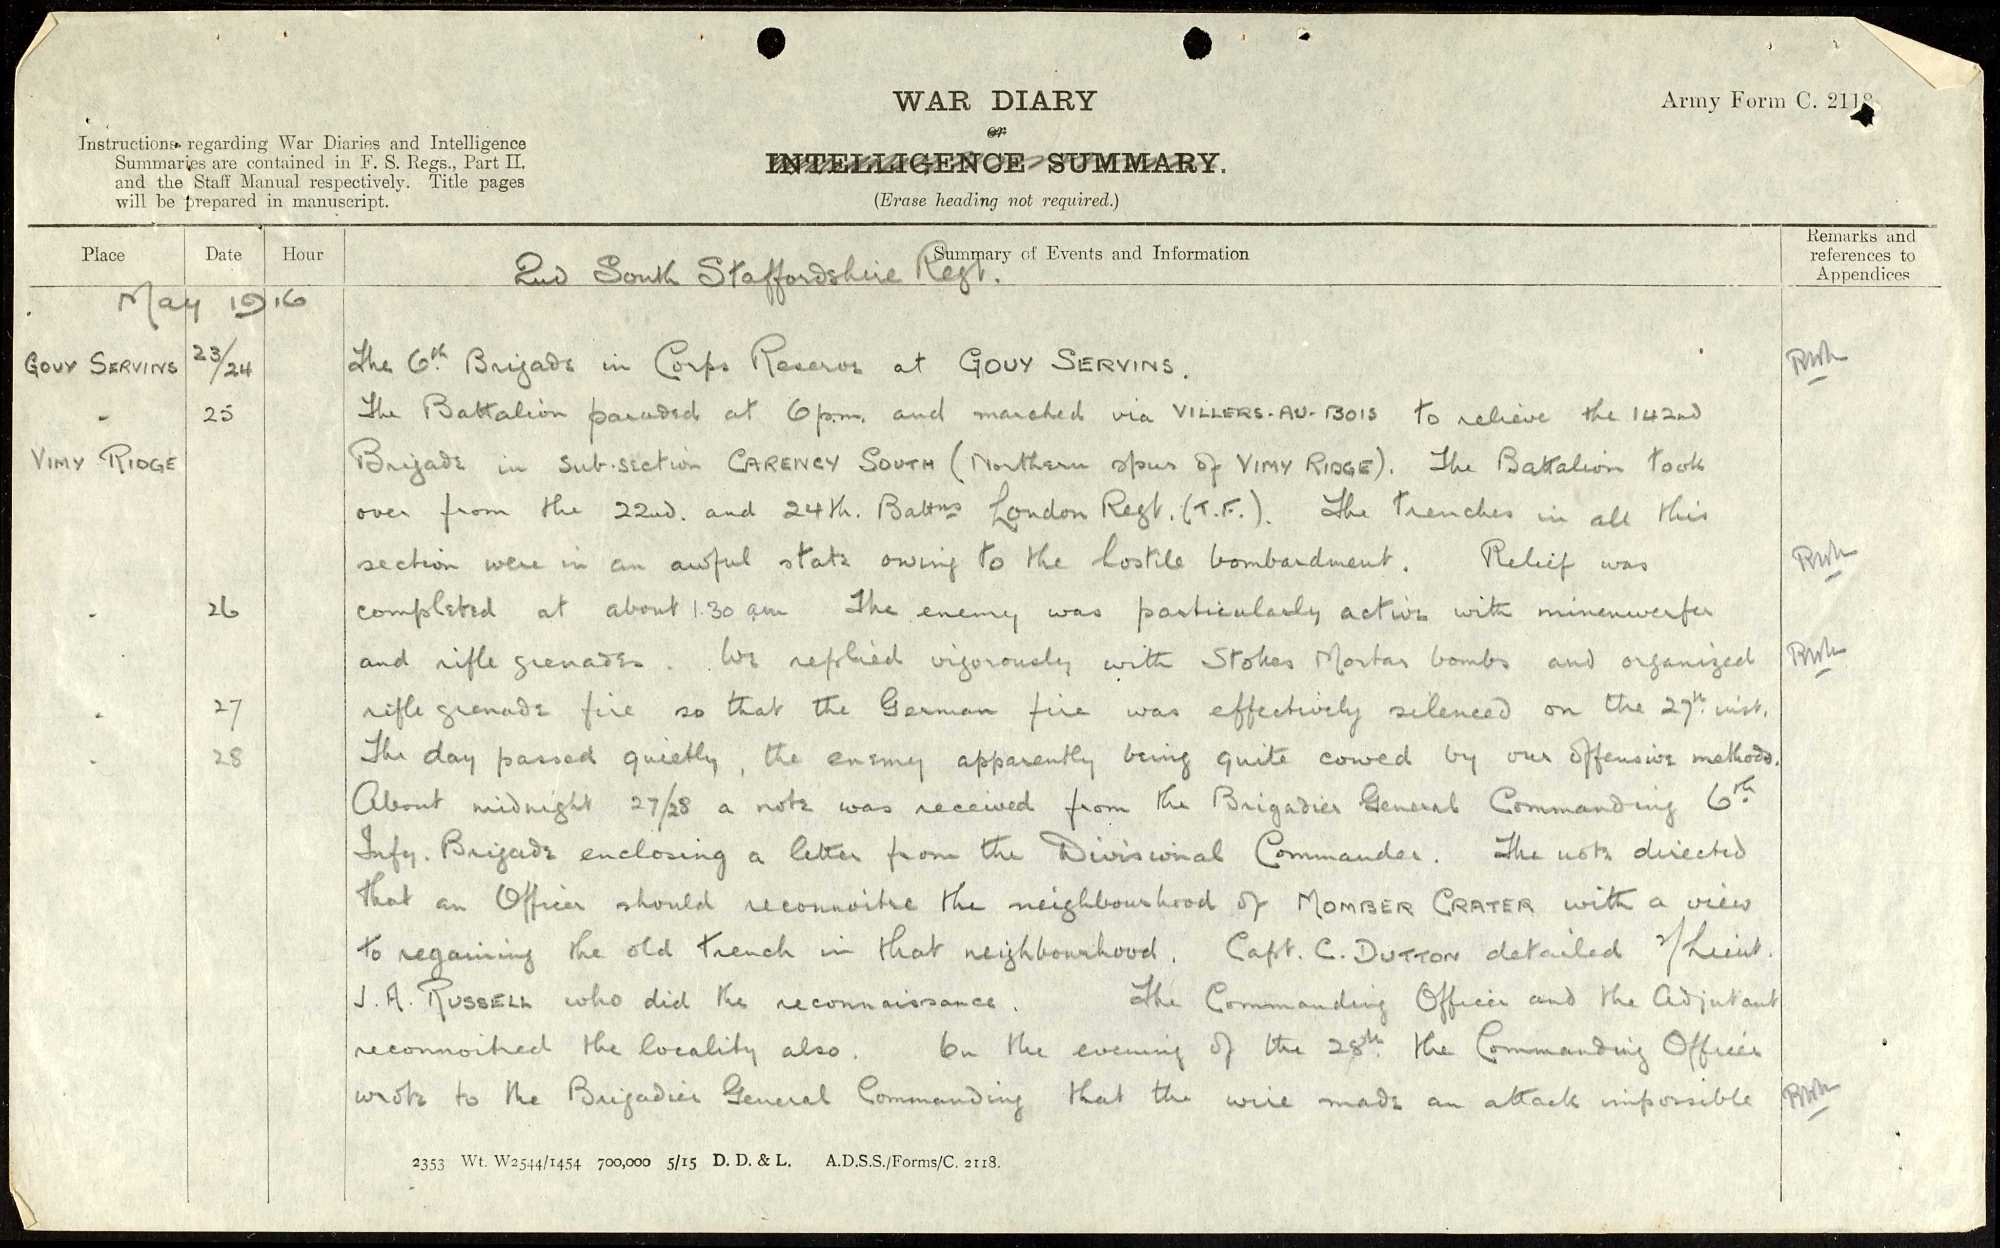 WAR DIARY
or
INTELLIGENCE SUMMARY.
(Erase heading not required.)
Army Form C. 2118
Instructions regarding War Diaries and Intelligence
Summaries are contained in F. S. Regs., Part II.
and the Staff Manual respectively. Title pages
will be prepared in manuscript.
Place Date Hour Summary of Events and Information Remarks and references to Appendices
2nd South Staffordshire Regt.
May 1916
GOUY SERVINS 23/24 The 6th Brigade in Corps Reserve at GOUY SERVINS.
" 25 The Battalion paraded at 6 p.m. and marched via VILLERS-AU-BOIS to relieve the 142nd
VIMY RIDGE Brigade in sub-section CARENCY SOUTH (Northern spur of VIMY RIDGE). The Battalion took
over from the 22nd. and 24th. Battns London Regt. (T.F.). The trenches in all this
section were in an awful state owing to the hostile bombardment. Relief was
" 26 completed at about 1.30 am The enemy was particularly active with minenwerfer
and rifle grenades. We replied vigorously with Stokes Mortar bombs and organized
" 27 rifle grenade fire so that the German fire was effectively silenced on the 27th inst.
" 28 The day passed quietly, the enemy apparently being quite cowed by our offensive methods.
About midnight 27/28 a note was received from the Brigadier General Commanding 6th
Infy. Brigade enclosing a letter from the Divisional Commander. The note directed
that an Officer should reconnoitre the neighbourhood of MOMBER CRATER with a view
to regaining the old trench in that neighbourhood. Capt. C. DUTTON detailed 2/Lieut.
J. A. RUSSELL who did the reconnaissance. The Commanding Officer and the Adjutant
reconnoitred the locality also. On the evening of the 28th the Commanding Officer
wrote to the Brigadier General Commanding that the wire made an attack impossible
2353 Wt. W2544/1454 700,000 5/15 D. D. & L. A.D.S.S./Forms/C. 2118.